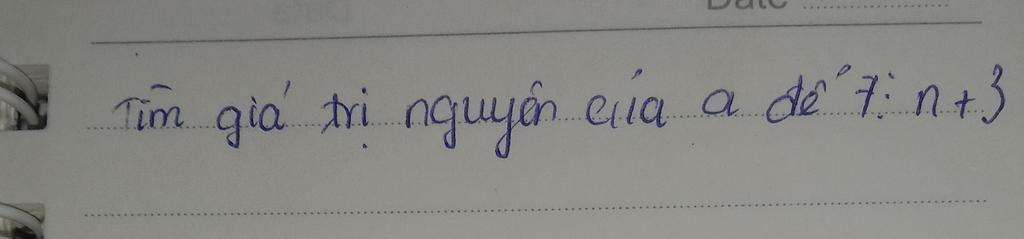 Date
Tìm giá trị nguyên của a để 7⋮ n + 3